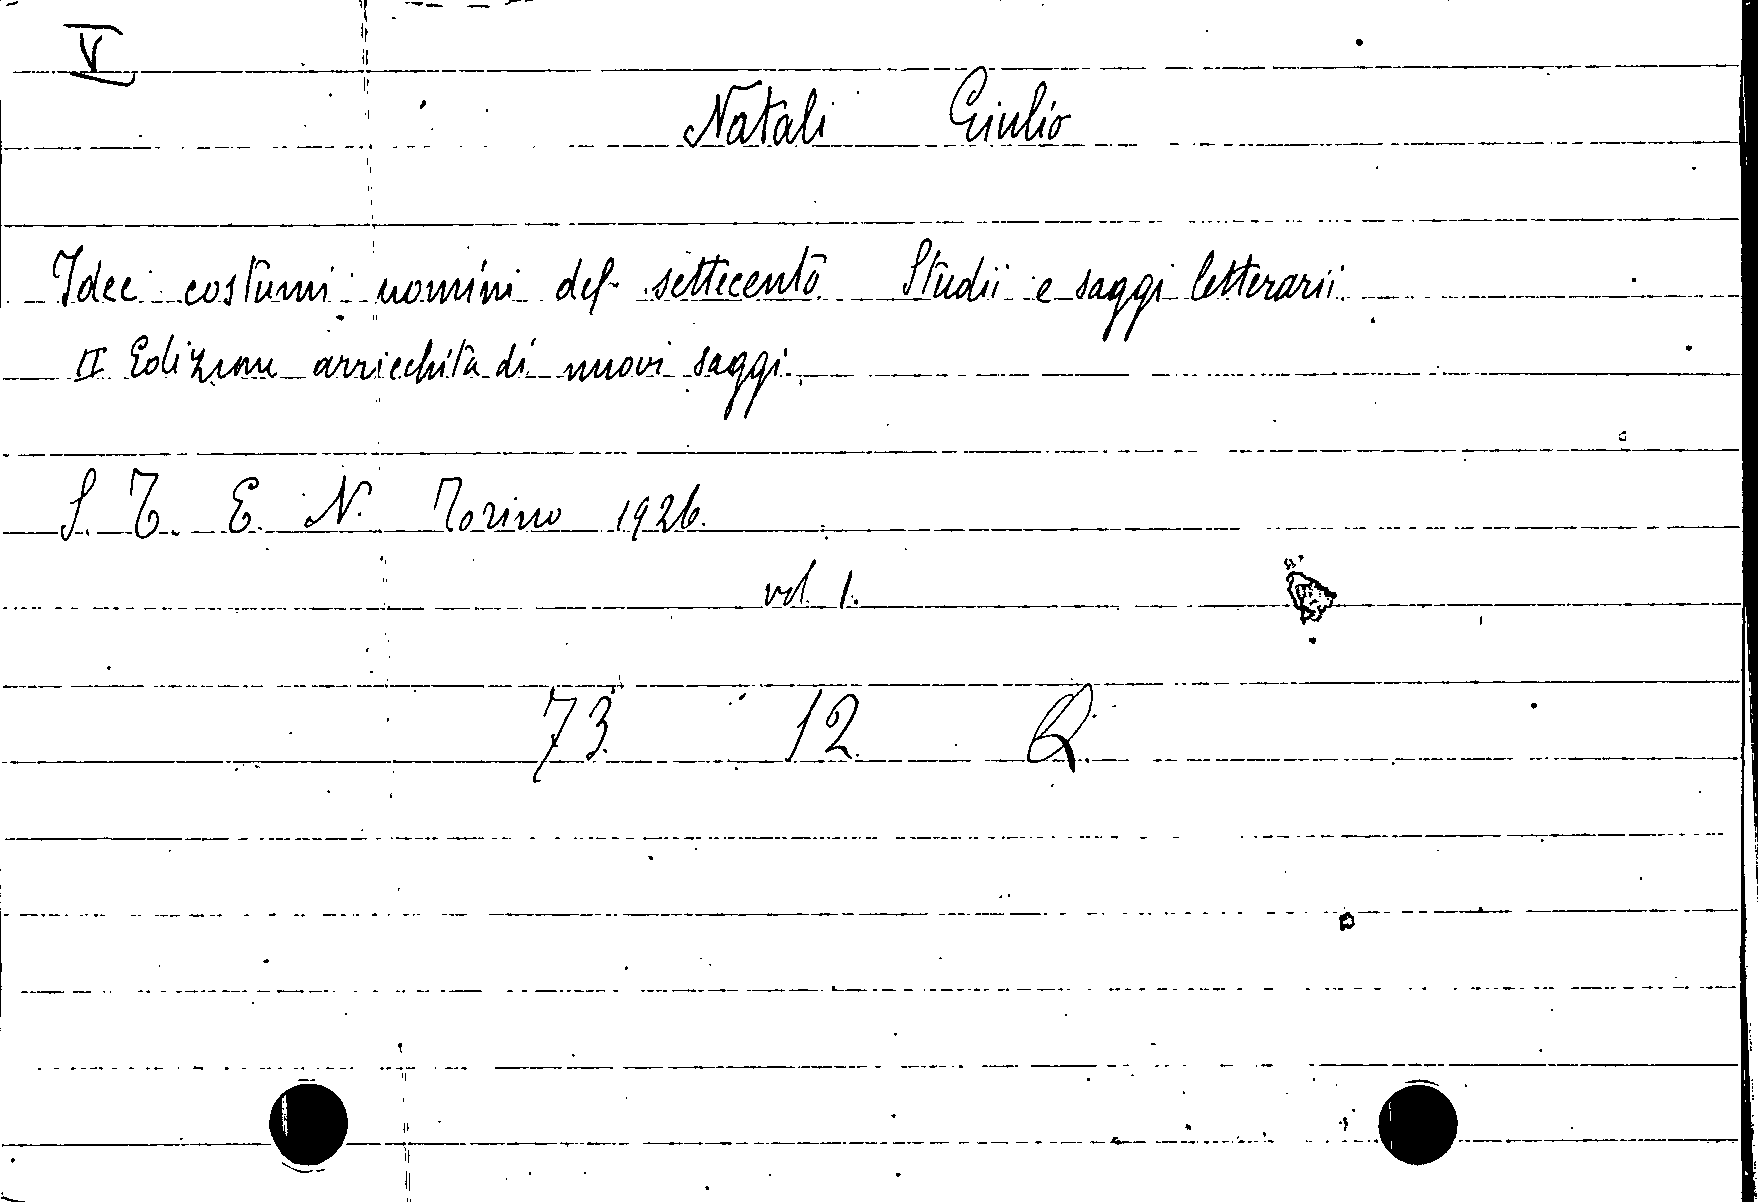 V
Natali Giulio
Idee costumi uomini del settecento Studii e saggi letterarii
II Edizione arricchita di nuovi saggi.
S. T. E. N. Torino 1926.
vol 1.
73. 12. Q.